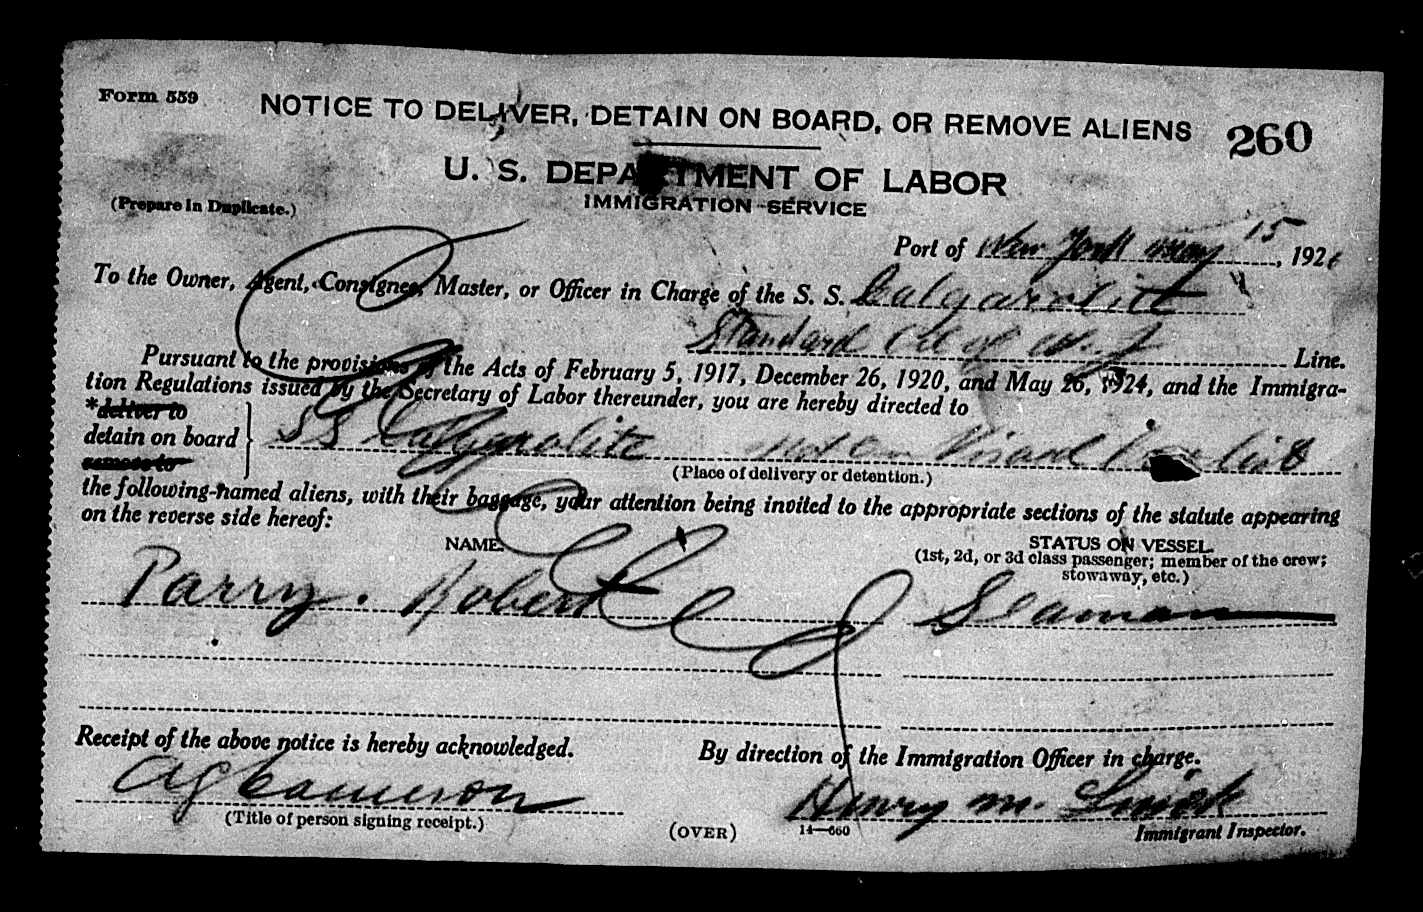 Form 559
NOTICE TO DELIVER, DETAIN ON BOARD, OR REMOVE ALIENS
260
U. S. DEPARTMENT OF LABOR
IMMIGRATION SERVICE
(Prepare in Duplicate.)
Port of New York May 15, 192
To the Owner, Agent, Consignee, Master, or Officer in Charge of the S. S. Calgarolite
Standard Oil of N. J. Line.
Pursuant to the provisions of the Acts of February 5, 1917, December 26, 1920, and May 26, 1924, and the Immigra-
tion Regulations issued by the Secretary of Labor thereunder, you are hereby directed to
*deliver to
detain on board } SS Calgarolite not on Visaed Crew list
remove to
(Place of delivery or detention.)
the following-named aliens, with their baggage, your attention being invited to the appropriate sections of the statute appearing
on the reverse side hereof:
NAME.
STATUS ON VESSEL.
(1st, 2d, or 3d class passenger; member of the crew;
stowaway, etc.)
Parry. Robert Seaman
Receipt of the above notice is hereby acknowledged.
By direction of the Immigration Officer in charge.
Cameron
Henry M.
(Title of person signing receipt.)
(OVER)
14—660
Immigrant Inspector.